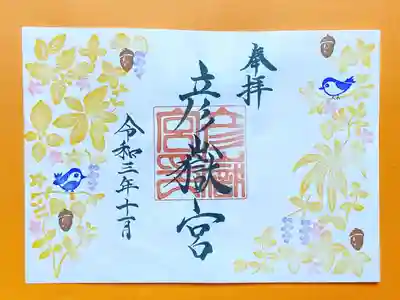 奉拝
彦嶽宮
令和三年十一月